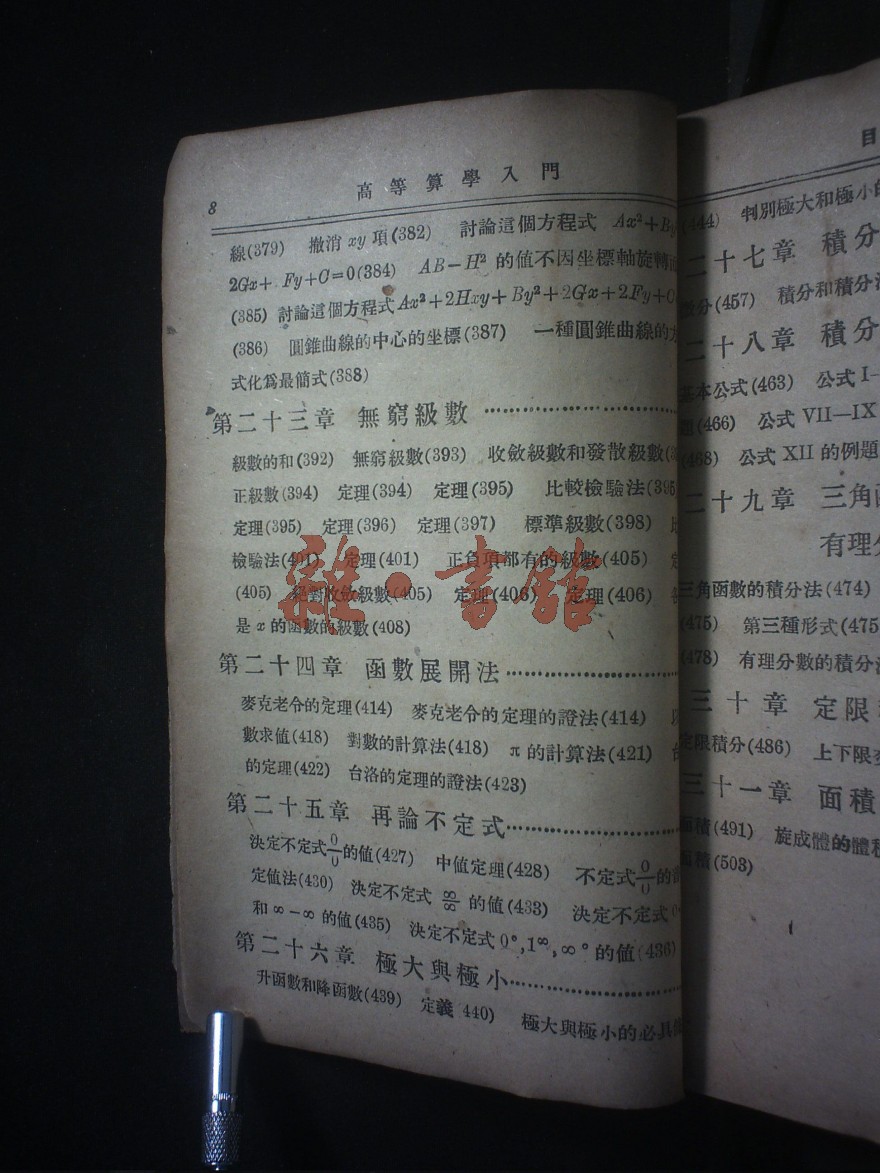 8
高等算學入門
線(379) 撤消 xy 項(382) 討論這個方程式 Ax²+By
2Gx+ Fy+C=0(384) AB−H² 的値不因坐標軸旋轉
(385) 討論這個方程式Ax²+2Hxy+By²+2Gx+2Fy+C
(386) 圓錐曲線的中心的坐標(387) 一種圓錐曲線的方
式化爲最簡式(388)
第二十三章 無窮級數
級數的和(392) 無窮級數(393) 收斂級數和發散級數(
正級數(394) 定理(394) 定理(395) 比較檢驗法(395
定理(395) 定理(396) 定理(397) 標準級數(398)
檢驗法(401) 定理(401) 正負項都有的級數(405)
(405) 絕對收斂級數(405) 定理(406) 定理(406)
是 x 的函數的級數(408)
第二十四章 函數展開法
麥克老令的定理(414) 麥克老令的定理的證法(414)
數求値(418) 對數的計算法(418) π 的計算法(421)
的定理(422) 台洛的定理的證法(423)
第二十五章 再論不定式
決定不定式0/0的値(427) 中値定理(428) 不定式0/0的
定値法(430) 決定不定式 ∞/∞ 的値(433) 決定不定式
和 ∞−∞ 的値(435) 決定不定式 0⁰,1^∞,∞⁰ 的値(436)
第二十六章 極大與極小
升函數和降函數(439) 定義 440) 極大與極小的必具
目
(444) 判別極大和極小的
二十七章 積分
分(457) 積分和積分
二十八章 積分
基本公式(463) 公式 I—
(466) 公式 VII—IX
(468) 公式 XII 的例題
二十九章 三角函
有理分
三角函數的積分法(474)
(475) 第三種形式(475
(478) 有理分數的積分
三十章 定限
定限積分(486) 上下限
三十一章 面積
面積(491) 旋成體的體積
面積(503)
雜·書館